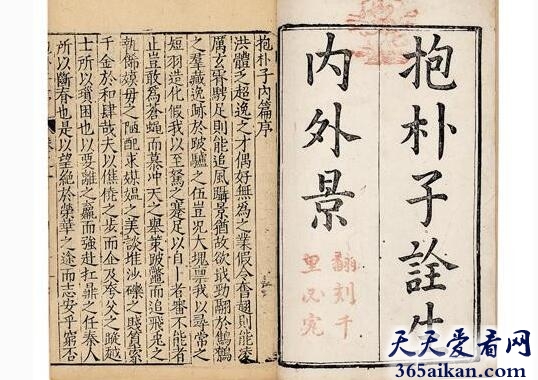 抱朴子詮生
内外景
翻刻千
里必究
抱朴子内篇序
洪體乏超逸之才偶好無為之業假令奮翅則能凌
厲玄霄騁足則能追風躡景猶故欲戢勁翮於鷦鷃
之羣藏逸跡於跛驢之伍豈况大塊禀我以尋常之
短羽造化假我以至駑之蹇足以自卜者審不能者
止豈敢為蒼蠅而慕冲天之舉策跛鱉而追飛兎之
軌飾嫫母之陋醜求媒媼之美談推沙礫之賤質索
千金於和肆哉夫以僬僥之步而企及夸父之蹤越
士所以躓困也以要離之羸而強赴扛鼎之任秦人
所以斷脊也是以望絶於榮華之途而志安乎窮否
天天爱看网
365aikan.com